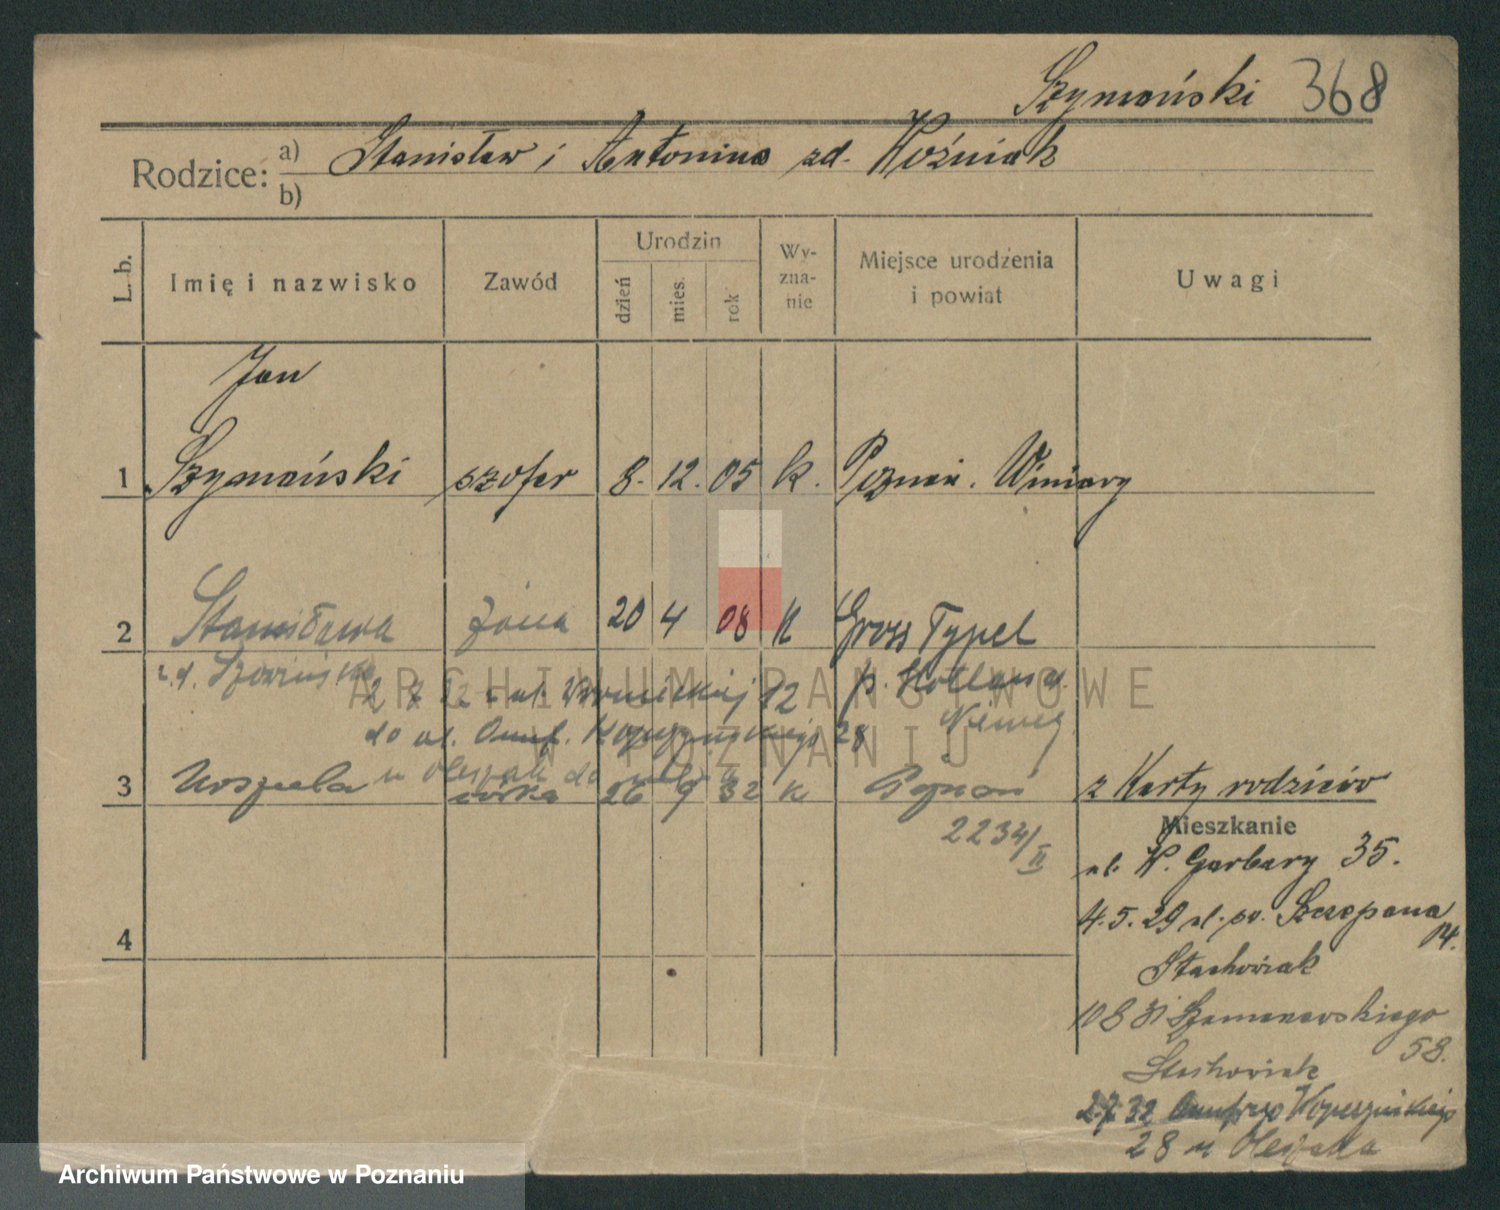 Szymański 368
Rodzice: a) Stanisław i Antonina zd. Woźniak
b)
L. b.
Imię i nazwisko
Zawód
Urodzin
dzień
mies.
rok
Wy-
zna-
nie
Miejsce urodzenia
i powiat
Uwagi
Jan
1 Szymański szofer 8. 12. 05 k. Poznań. Winiary
2 Stanisława żona 20 4 08 K Gross Typel
z.d. p. Holland.
2 7 32 ul. 12 Niemcy
do ul. Onuf. Kopczyńskiego 28
3 Urszula córka 26 9 32 k Poznań z Karty rodziców
2234/II
Mieszkanie
ul. W. Garbary 35.
4.5.29 ul. św. Szczepana
14.
4 Stachowiak
10 8 31 Szamarzewskiego
58.
Stachowiak
2.7.32 Onufrego Kopczyńskiego
28 u Olejnika
ARCHIWUM PAŃSTWOWE
W POZNANIU
Archiwum Państwowe w Poznaniu